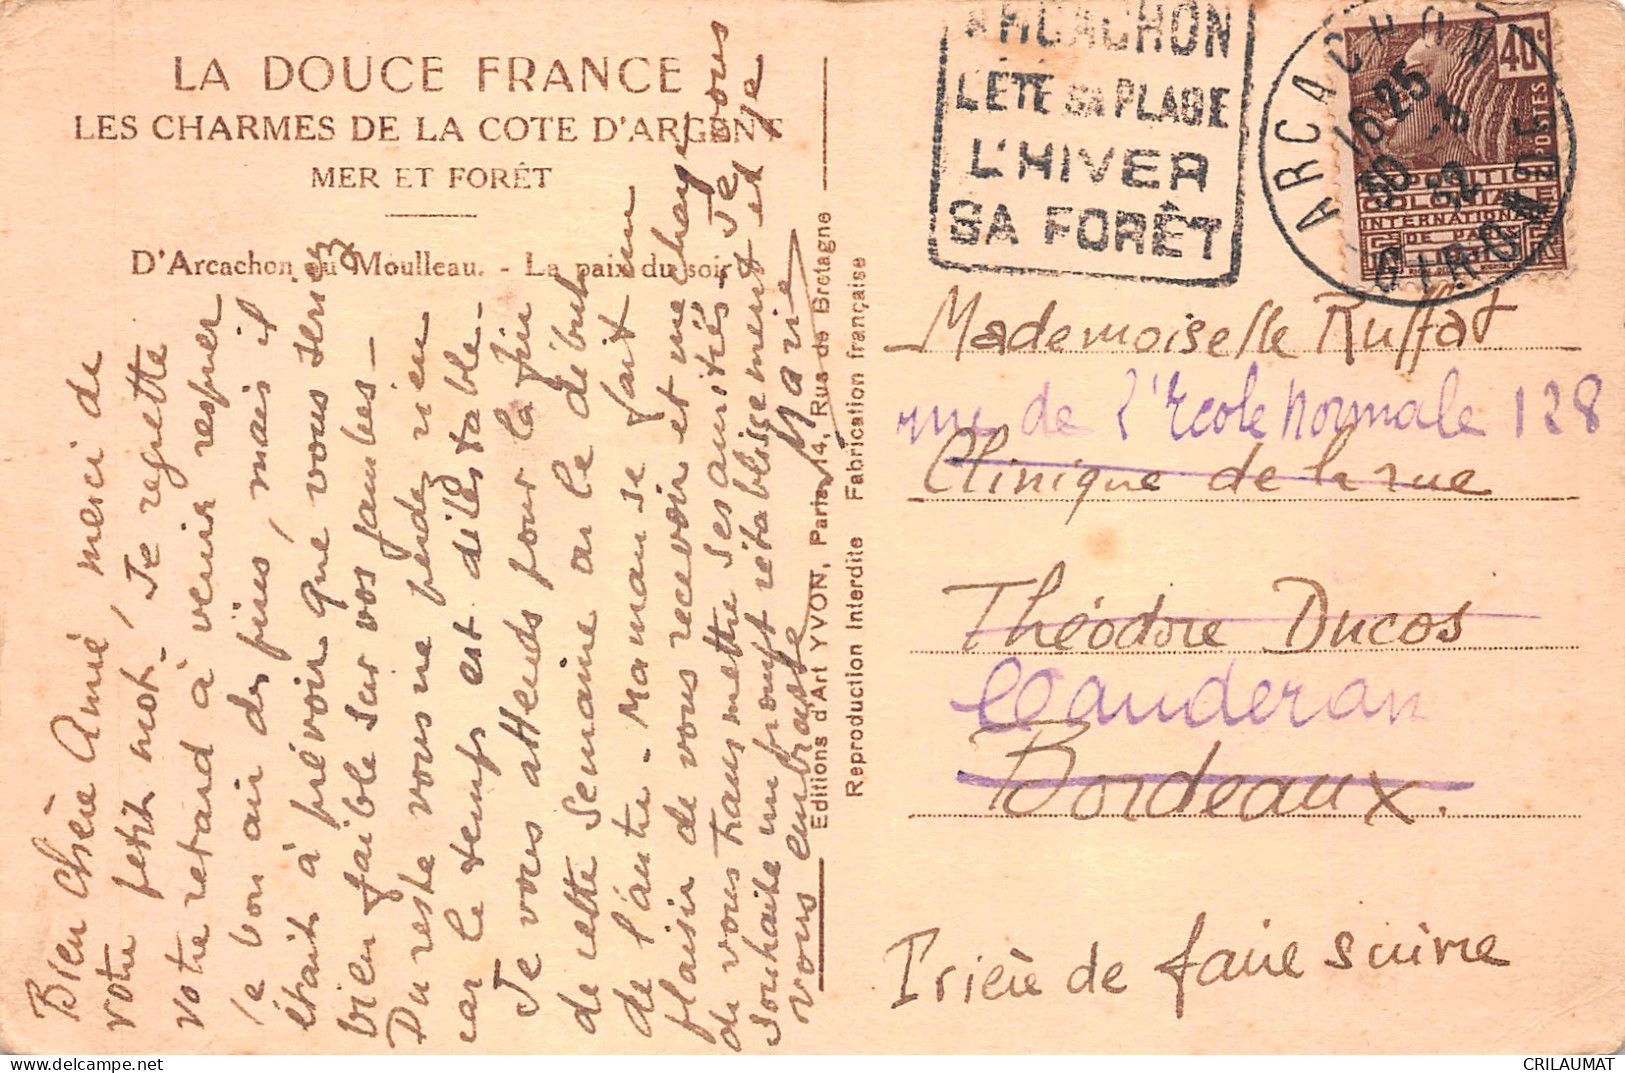 LA DOUCE FRANCE
LES CHARMES DE LA COTE D'ARGENT
MER ET FORÊT
D'Arcachon au Moulleau. - La paix du soir
Bien Chère Amie, merci de
votre petit mot. Je regrette
votre retard à venir respirer
le bon air des pins, mais il
était à prévoir que vous seriez
bien faible sur vos jambes -
Du reste vous ne perdez rien
car le temps est détestable.
Je vous attends pour la fin
de cette semaine ou le début
de l'autre. Maman se fait un
plaisir de vous recevoir et me charge
de vous transmettre ses amitiés. Je vous
souhaite un prompt rétablissement et je
vous embrasse
Marie
Editions d'Art YVON, Paris, 14, Rue de Bretagne
Reproduction Interdite Fabrication française
ARCACHON
L'ÉTÉ SA PLAGE
L'HIVER
SA FORÊT
ARCACHON
16 25
30 -5
32
GIRONDE
40c
POSTES
EXPOSITION
COLONIALE
INTERNATIONALE
DE PARIS
Mademoiselle Ruffat
rue de l'École normale 128
Clinique de la rue
Théodore Ducos
Cauderan
Bordeaux.
Prière de faire suivre
CRILAUMAT